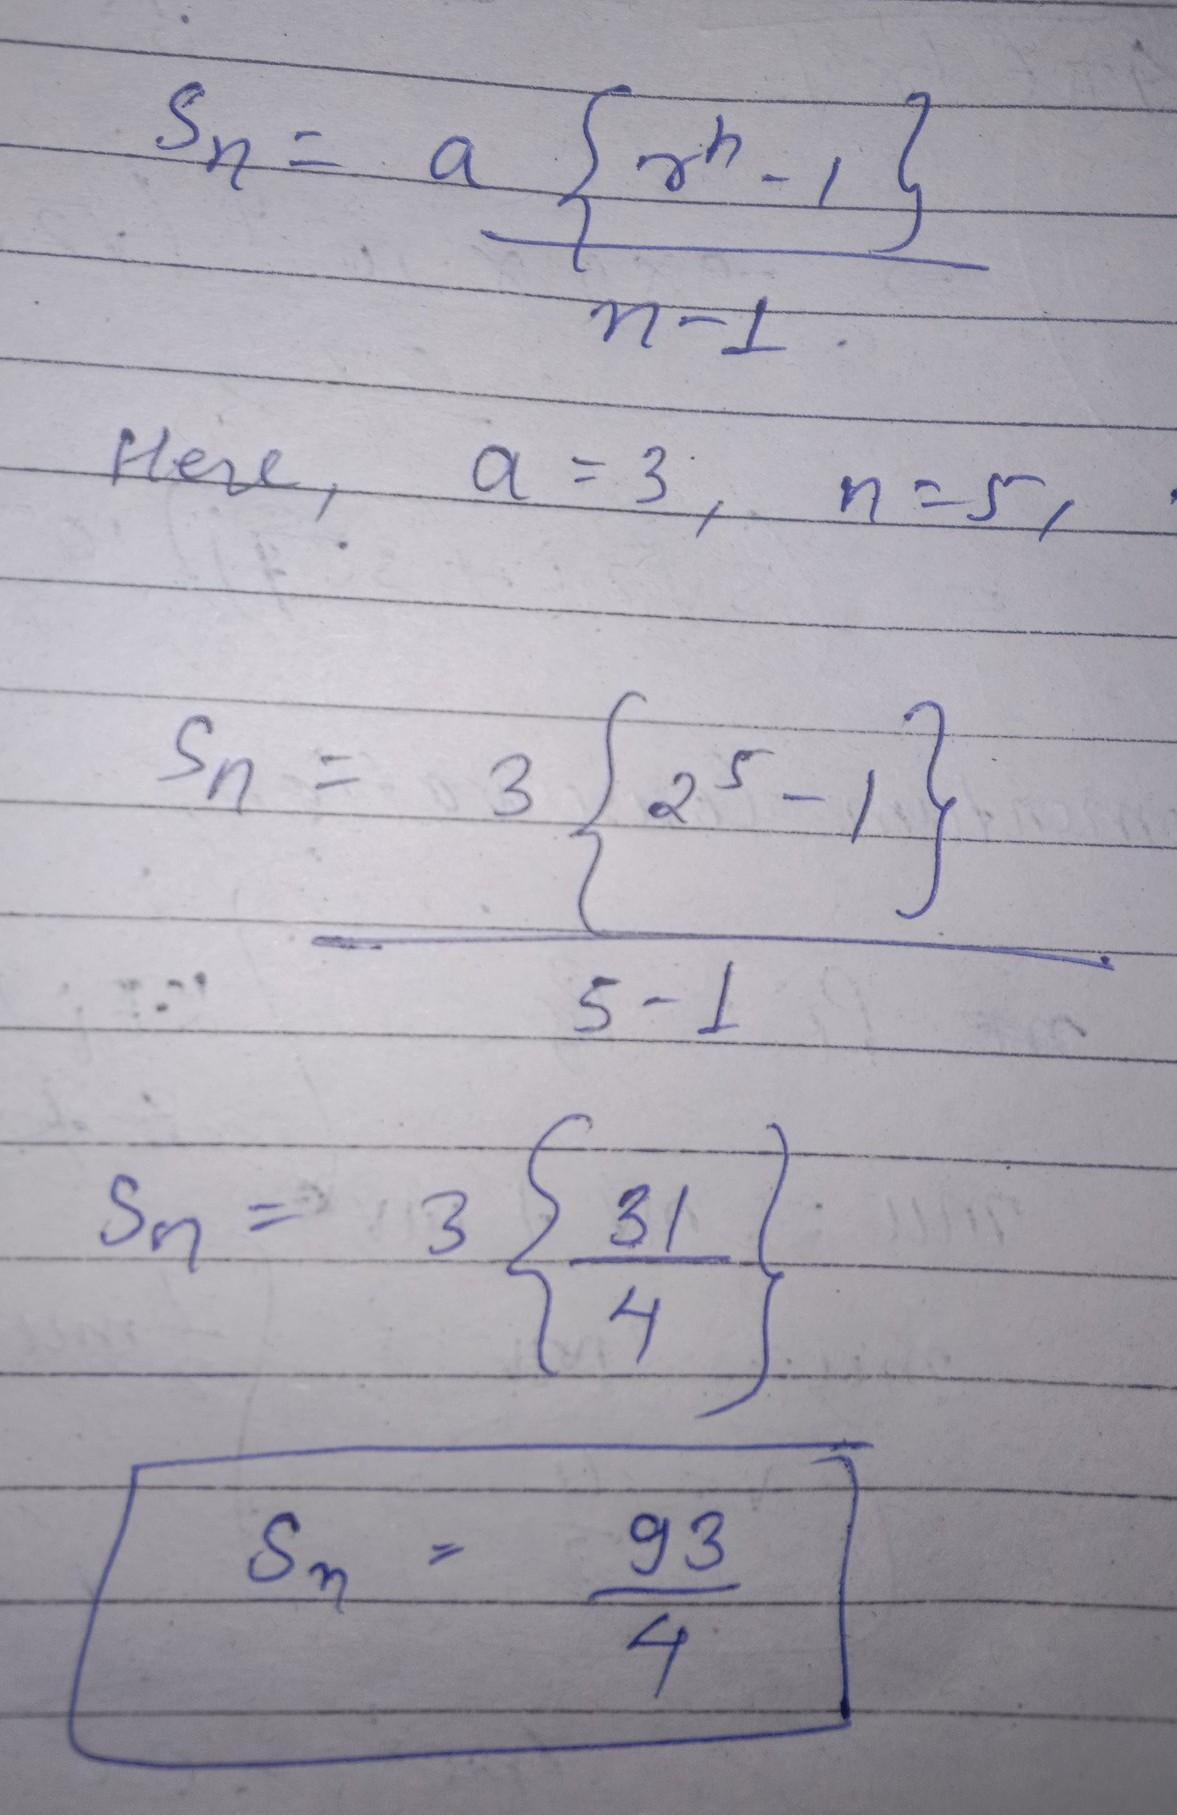 Sn = a {r^n - 1}
n-1.
Here, a = 3, n = 5,
Sn = 3 {2^5 - 1}
5-1
Sn = 3 {31
4}
Sn = 93
4